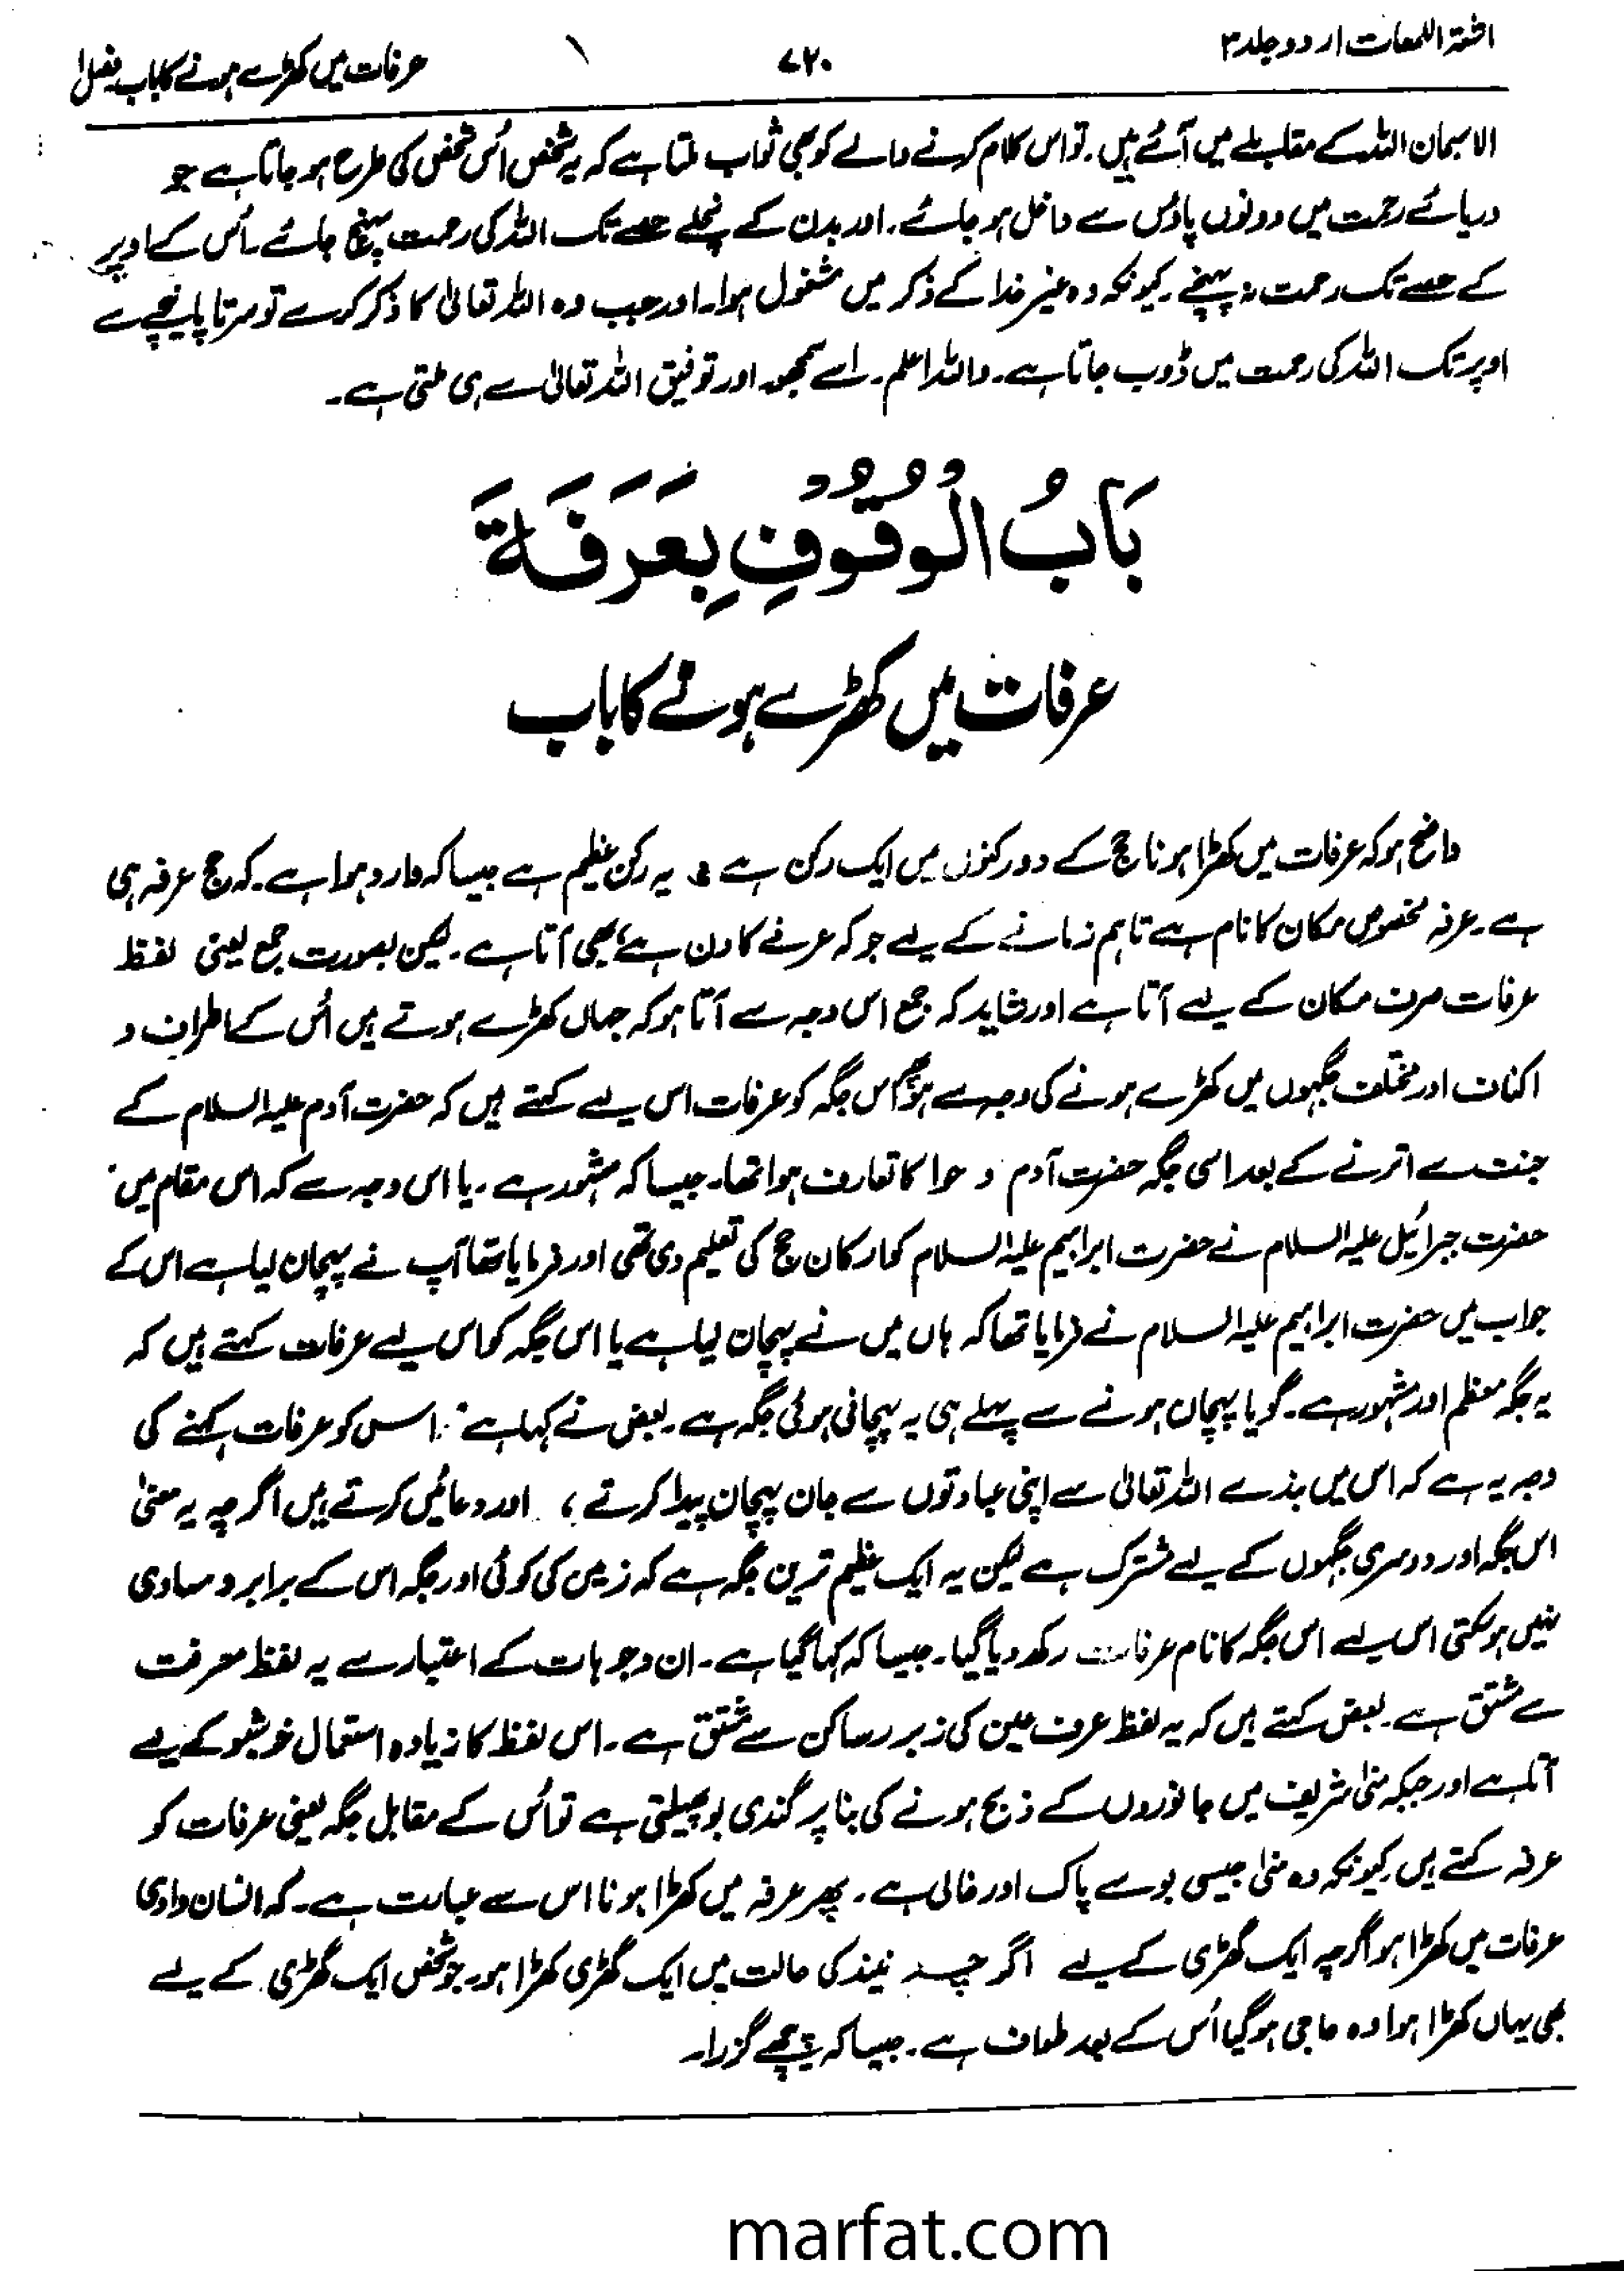 اشعۃ اللمعات اردو جلد ۳
۷۲۰
عرفات میں کھڑے ہونے کا باب فصل ۱
الا سبحان اللہ کے مقابلے میں آئے ہیں۔ تو اس کلام کرنے والے کو بھی ثواب ملتا ہے کہ یہ شخص اُس شخص کی طرح ہو جاتا ہے جو
دریائے رحمت میں دونوں پاؤں سے داخل ہو جائے۔ اور بدن کے نچلے حصے تک اللہ کی رحمت پہنچ جائے۔ اُس کے اوپر
کے حصے تک رحمت نہ پہنچے۔ کیونکہ وہ غیر خدا کے ذکر میں مشغول ہوا۔ اور جب وہ اللہ تعالیٰ کا ذکر کرے تو سرتا پا نیچے سے
اوپر تک اللہ کی رحمت میں ڈوب جاتا ہے۔ واللہ اعلم۔ اسے سمجھو اور توفیق اللہ تعالیٰ سے ہی ملتی ہے۔
بَابُ الْوُقُوْفِ بِعَرَفَةَ
عرفات میں کھڑے ہونے کا باب
واضح ہو کہ عرفات میں کھڑا ہونا حج کے دو رکنوں میں ایک رکن ہے و یہ رکن عظیم ہے جیسا کہ وارد ہوا ہے۔ کہ حج عرفہ ہی
ہے۔ عرفہ مخصوص مکان کا نام ہے تاہم زمانے کے لیے جو کہ عرفے کا دن ہے، بھی آتا ہے۔ لیکن بصورت جمع یعنی لفظ
عرفات صرف مکان کے لیے آتا ہے اور شاید کہ جمع اس وجہ سے آتا ہو کہ جہاں کھڑے ہوتے ہیں اُس کے اطراف و
اکناف اور مختلف جگہوں میں کھڑے ہونے کی وجہ سے ہو پھر اس جگہ کو عرفات اس لیے کہتے ہیں کہ حضرت آدم علیہ السلام کے
جنت سے اترنے کے بعد اسی جگہ حضرت آدم و حوا کا تعارف ہوا تھا۔ جیسا کہ مشہور ہے۔ یا اس وجہ سے کہ اس مقام میں
حضرت جبرائیل علیہ السلام نے حضرت ابراہیم علیہ السلام کو ارکان حج کی تعلیم دی تھی اور فرمایا تھا آپ نے پہچان لیا ہے اس کے
جواب میں حضرت ابراہیم علیہ السلام نے فرمایا تھا کہ ہاں میں نے پہچان لیا ہے یا اس جگہ کو اس لیے عرفات کہتے ہیں کہ
یہ جگہ معظم اور مشہور ہے۔ گویا پہچان ہونے سے پہلے ہی یہ پہچانی ہوئی جگہ ہے۔ بعض نے کہا ہے اس کو عرفات کہنے کی
وجہ یہ ہے کہ اس میں بندے اللہ تعالیٰ سے اپنی عبادتوں سے جان پہچان پیدا کرتے، اور دعائیں کرتے ہیں اگرچہ یہ معنیٰ
اس جگہ اور دوسری جگہوں کے لیے مشترک ہے لیکن یہ ایک عظیم ترین جگہ ہے کہ زمین کی کوئی اور جگہ اس کے برابر و مساوی
نہیں ہو سکتی اس لیے اس جگہ کا نام عرفات رکھ دیا گیا۔ جیسا کہ کہا گیا ہے۔ ان وجوہات کے اعتبار سے یہ لفظ معرفت
سے مشتق ہے۔ بعض کہتے ہیں کہ یہ لفظ عرف عین کی زبر رساکن سے مشتق ہے۔ اس لفظ کا زیادہ استعمال خوشبو کے لیے
آتا ہے اور جبکہ منیٰ شریف میں جانوروں کے ذبح ہونے کی بنا پر گندی بو پھیلتی ہے تو اُس کے مقابل جگہ یعنی عرفات کو
عرفہ کہتے ہیں۔ کیونکہ وہ منیٰ جیسی بو سے پاک اور خالی ہے۔ پھر عرفہ میں کھڑا ہونا اس سے عبارت ہے۔ کہ انسان وادی
عرفات میں کھڑا ہو اگرچہ ایک گھڑی کے لیے اگرچہ نیند کی حالت میں ایک گھڑی کھڑا ہو۔ جو شخص ایک گھڑی کے لیے
بھی یہاں کھڑا ہوا وہ حاجی ہو گیا اُس کے بعد طواف ہے۔ جیسا کہ پیچھے گزرا۔
marfat.com